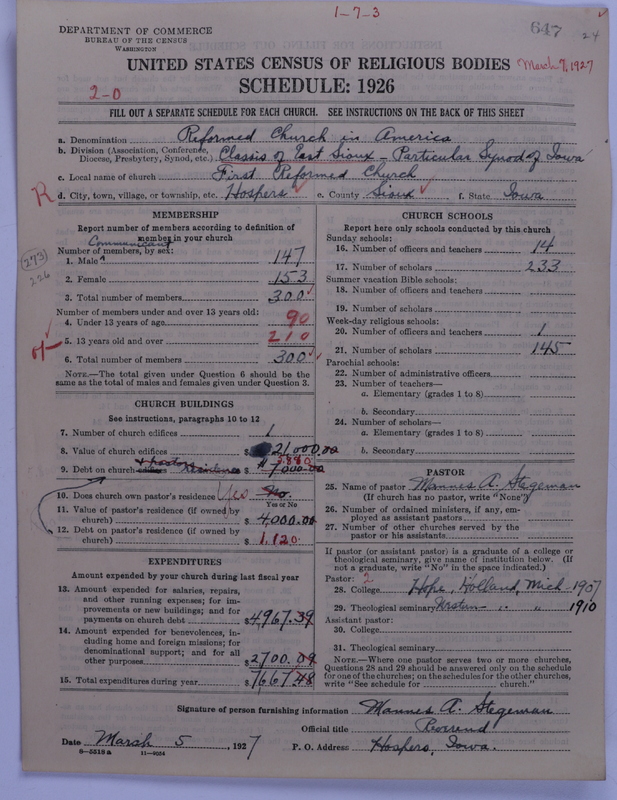 1-7-3
647
24
DEPARTMENT OF COMMERCE
BUREAU OF THE CENSUS
WASHINGTON
UNITED STATES CENSUS OF RELIGIOUS BODIES
March 7, 1927
SCHEDULE: 1926
2-0
FILL OUT A SEPARATE SCHEDULE FOR EACH CHURCH. SEE INSTRUCTIONS ON THE BACK OF THIS SHEET
a. Denomination Reformed Church in America
b. Division (Association, Conference, Diocese, Presbytery, Synod, etc.) Classis of East Sioux - Particular Synod of Iowa
c. Local name of church First Reformed Church
R
d. City, town, village, or township, etc. Hospers e. County Sioux f. State Iowa
MEMBERSHIP
Report number of members according to definition of member in your church
Communicant
Number of members, by sex:
1. Male 147
273
226
2. Female 153
3. Total number of members 300
Number of members under and over 13 years old:
4. Under 13 years of age 90
5. 13 years old and over 210
6. Total number of members 300
NOTE.—The total given under Question 6 should be same as the total of males and females given under Question 3.
CHURCH BUILDINGS
See instructions, paragraphs 10 to 12
7. Number of church edifices 1
8. Value of church edifices $ 21000.00
9. Debt on church + pastor's residence $ 7000.00
3.880
10. Does church own pastor's residence Yes No.
Yes or No
11. Value of pastor's residence (if owned by church) $ 4,000.00
12. Debt on pastor's residence (if owned by church) $ 1,120
EXPENDITURES
Amount expended by your church during last fiscal year
13. Amount expended for salaries, repairs, and other running expenses; for improvements or new buildings; and for payments on church debt $ 4967.39
14. Amount expended for benevolences, including home and foreign missions; for denominational support; and for all other purposes $ 2700.09
15. Total expenditures during year $ 7667.48
CHURCH SCHOOLS
Report here only schools conducted by this church
Sunday schools:
16. Number of officers and teachers 14
17. Number of scholars 233
Summer vacation Bible schools:
18. Number of officers and teachers
19. Number of scholars
Week-day religious schools:
20. Number of officers and teachers 1
21. Number of scholars 145
Parochial schools:
22. Number of administrative officers
23. Number of teachers—
a. Elementary (grades 1 to 8)
b. Secondary
24. Number of scholars—
a. Elementary (grades 1 to 8)
b. Secondary
PASTOR
25. Name of pastor Mannes A. Stegeman
(If church has no pastor, write "None")
26. Number of ordained ministers, if any, employed as assistant pastors
27. Number of other churches served by the pastor or his assistants
If pastor (or assistant pastor) is a graduate of a college or theological seminary, give name of institution below. (If not a graduate, write "No" in the space indicated.)
Pastor: 2
28. College Hope, Holland, Mich 1907
29. Theological seminary Western " " 1910
Assistant pastor:
30. College
31. Theological seminary
NOTE.—Where one pastor serves two or more churches, Questions 28 and 29 should be answered only on the schedule for one of the churches; on the schedules for the other churches, write "See schedule for church."
Signature of person furnishing information Mannes A. Stegeman
Official title Reverend
Date March 5, 1927 P. O. Address Hospers, Iowa.
8—5518 a 11—9054